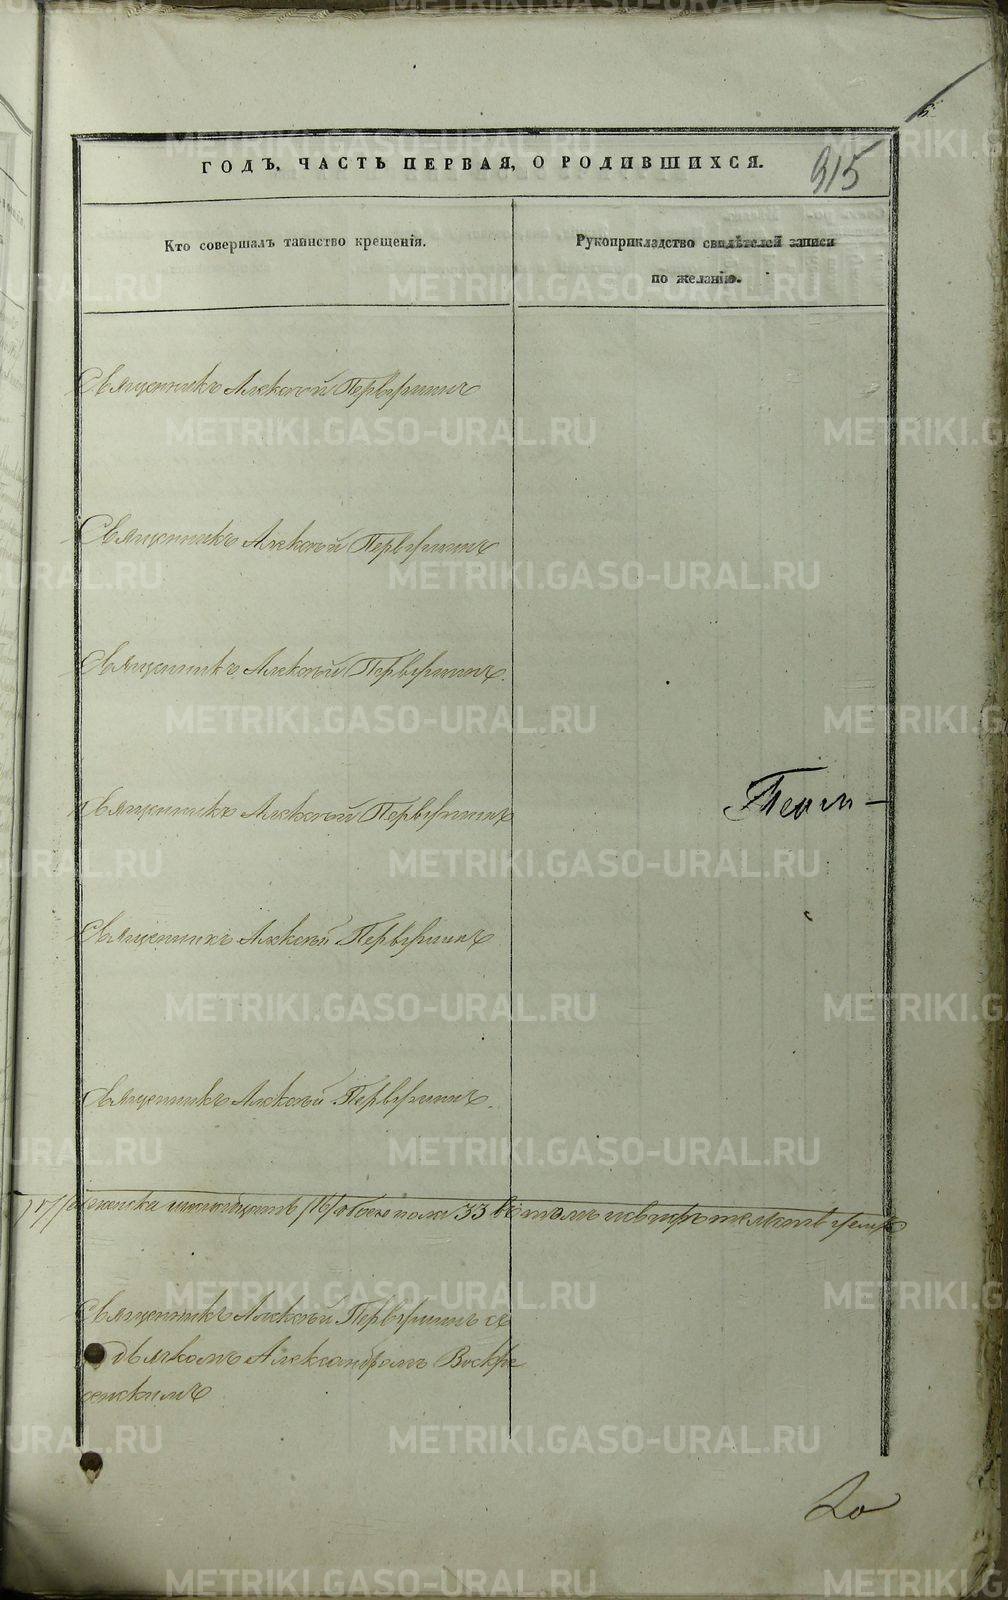 ГОДЪ, ЧАСТЬ ПЕРВАЯ, О РОДИВШИХСЯ.
915
Кто совершалъ таинство крещенія.
Рукоприкладство свидѣтелей записи
по желанію.
Священникъ Алексѣй Первушинъ
Священникъ Алексѣй Первушинъ
Священникъ Алексѣй Первушинъ.
Священникъ Алексѣй Первушинъ
Священникъ Алексѣй Первушинъ
Священникъ Алексѣй Первушинъ.
женска /16/ обоего пола 33 въ томъ
Священникъ Алексѣй Первушинъ съ
дьячкомъ Александромъ Воскре
сенскимъ
METRIKI.GASO-URAL.RU